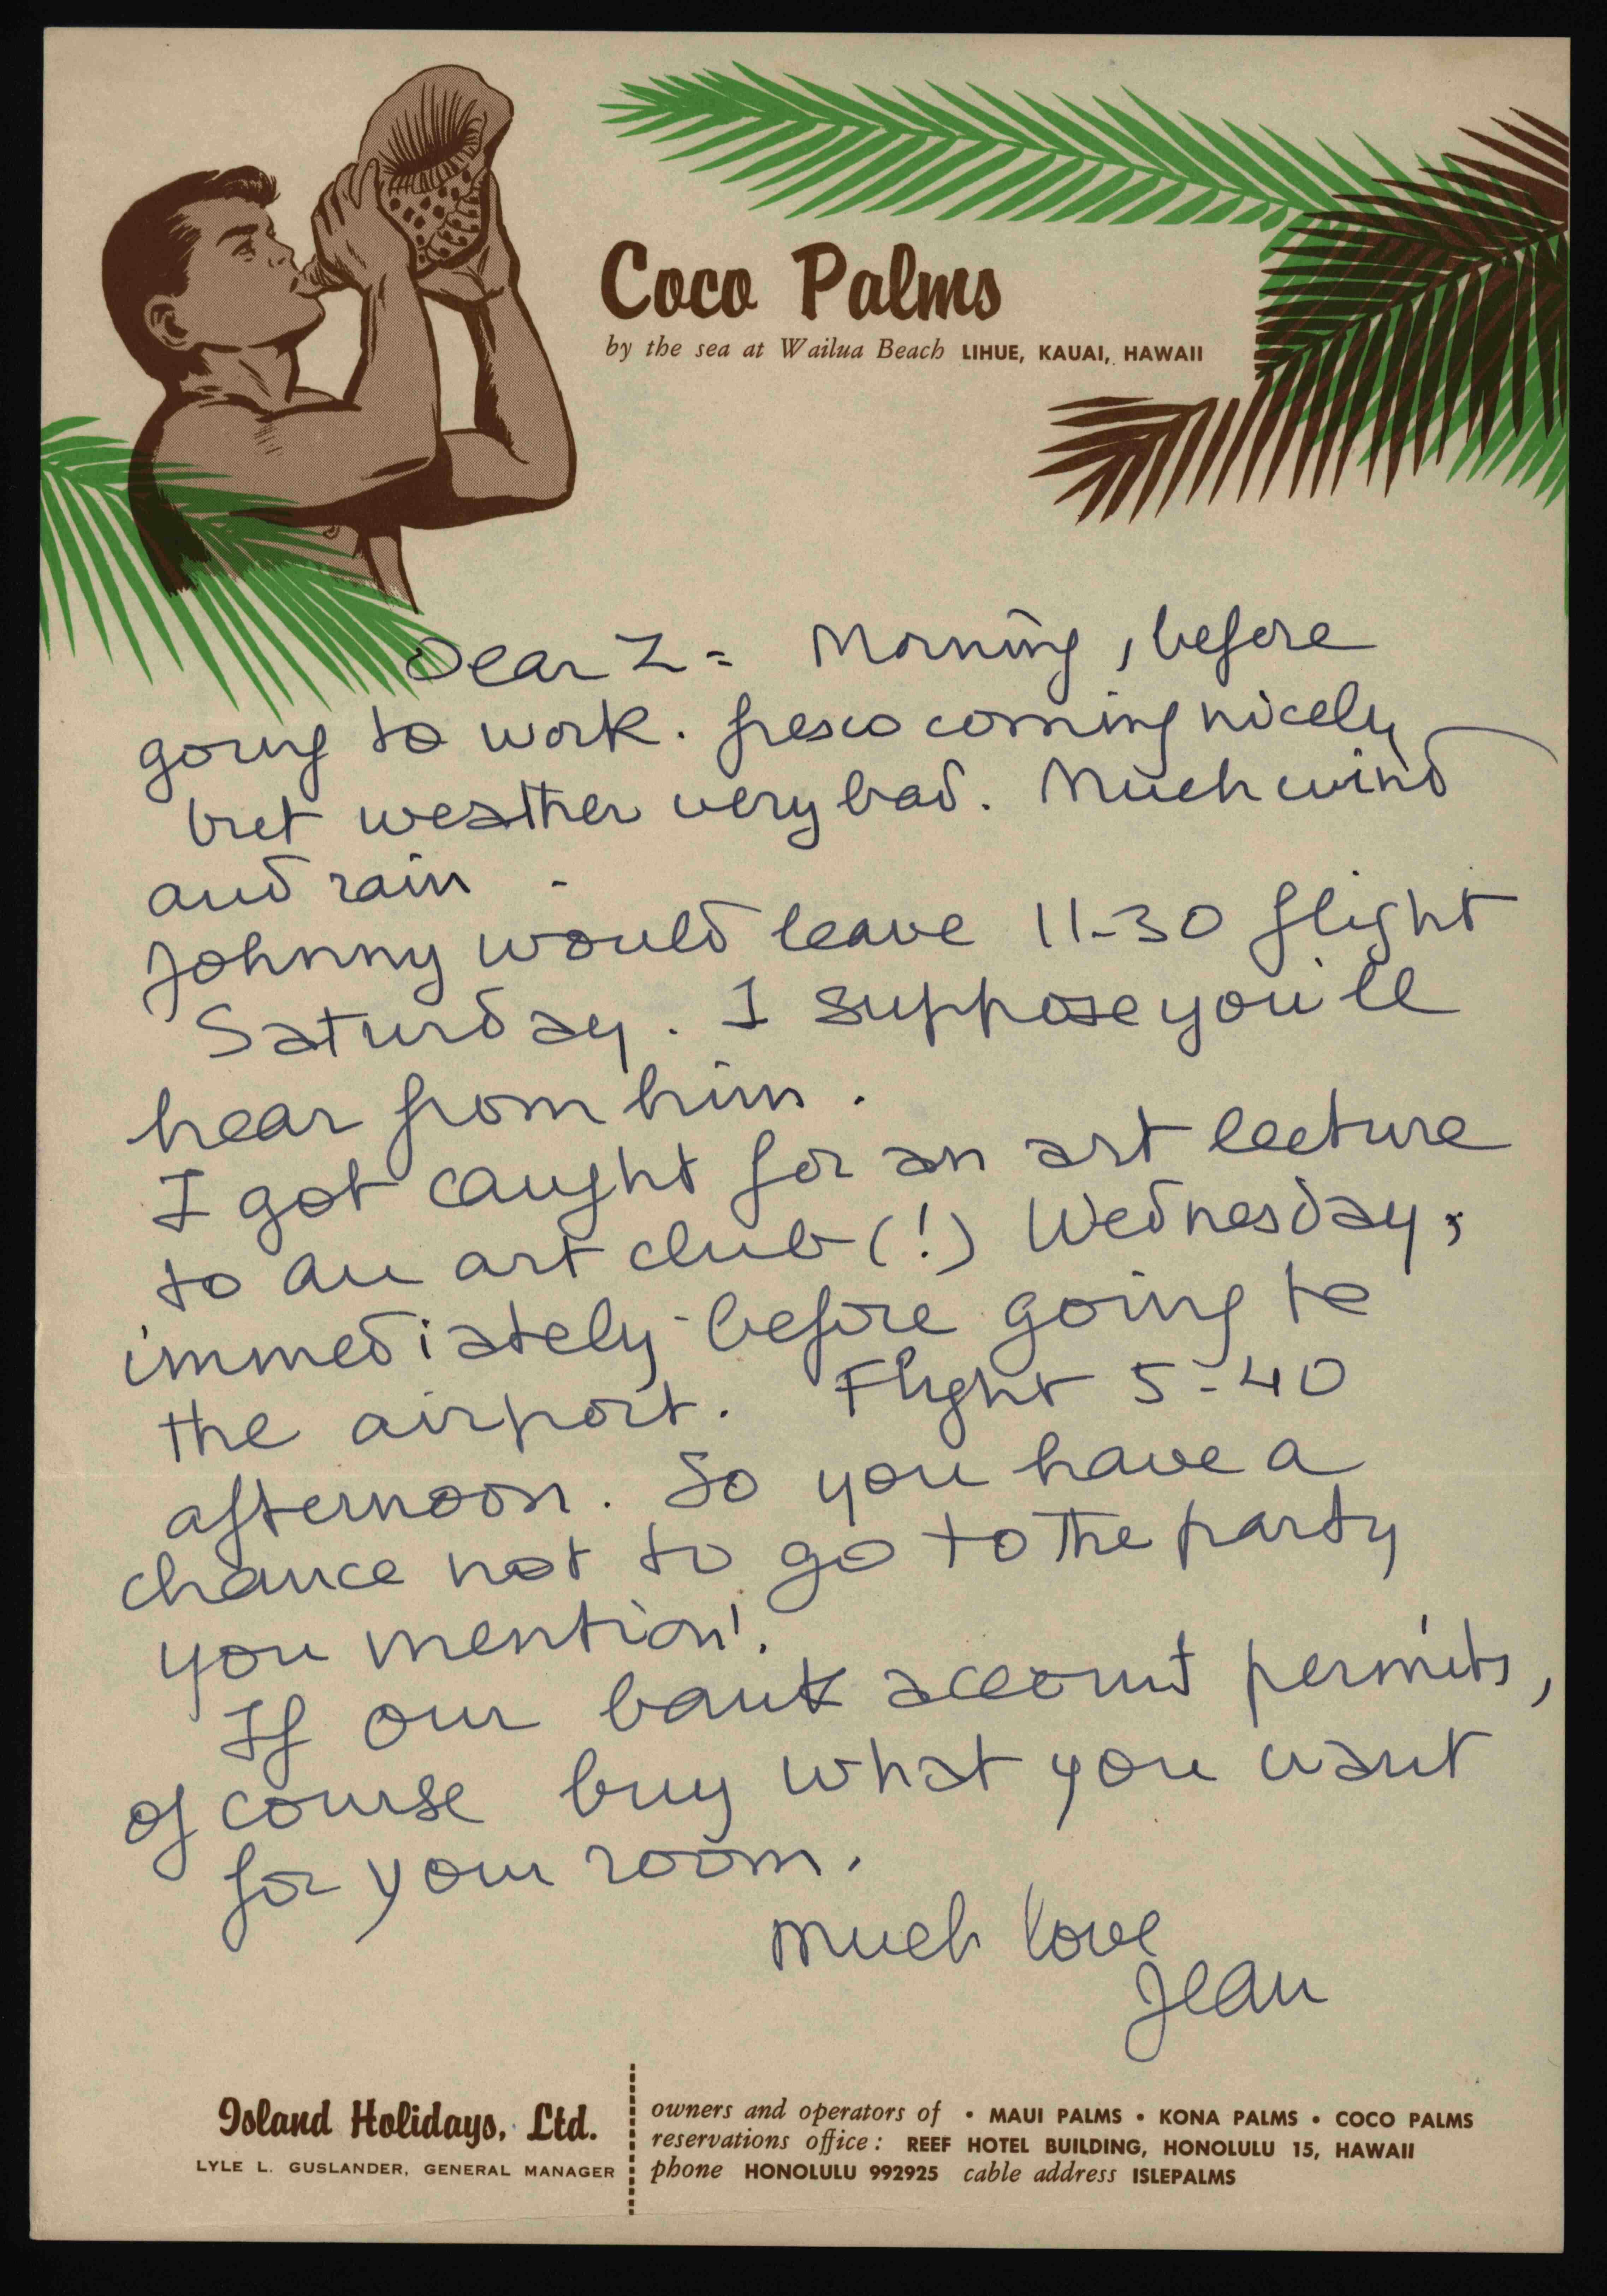 Coco Palms
by the sea at Wailua Beach LIHUE, KAUAI, HAWAII
Dear Z = Morning, before
going to work. fresco coming nicely
but weather very bad. Much wind
and rain -
Johnny would leave 11-30 flight
Saturday. I suppose you'll
hear from him.
I got caught for an art lecture
to an art club (!) Wednesday,
immediately before going to
the airport. Flight 5-40
afternoon. So you have a
chance not to go to the party
you mention!.
If our bank account permits,
of course buy what you want
for your room.
much love
Jean
Island Holidays, Ltd.
LYLE L. GUSLANDER, GENERAL MANAGER
owners and operators of • MAUI PALMS • KONA PALMS • COCO PALMS
reservations office: REEF HOTEL BUILDING, HONOLULU 15, HAWAII
phone HONOLULU 992925 cable address ISLEPALMS